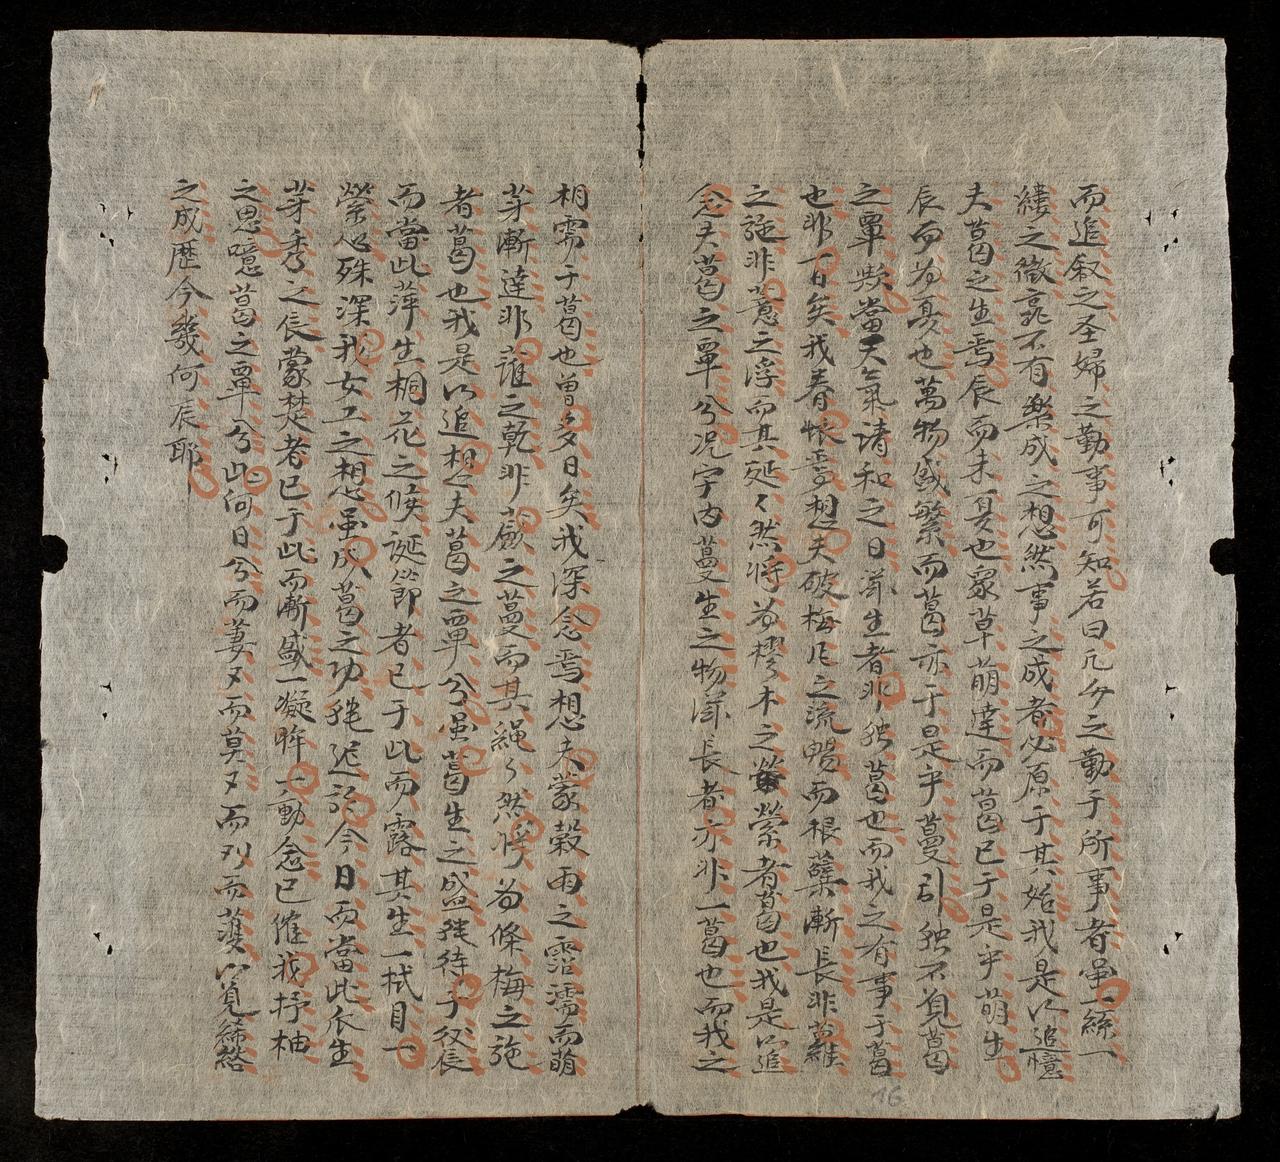 而追叙之圣婦之勤事可知若曰凡女之勤于所事者虽一絲一
縷之微靡不有樂成之想然事之成者必原于其始我是以追憶
夫葛之生焉辰而未夏也衆草萌達而葛已于是乎萌生
辰而为夏也萬物盛繁而葛亦于是乎蔓引独不覓葛
之覃欤當天氣清和之日滋生者非独葛也而我之有事于葛
也非一日矣我眷怀焉想夫破梅爿之流暢而根蘖漸長非蘿
之施非薏之浮而其延々然将为樛木之縈者葛也我是以追
念夫葛之覃兮况宇内蔓生之物滋長者亦非一葛也而我之
相需于葛也曽多日矣我深念焉想夫蒙榖雨之霑濡而萌
芽漸達非蓷之乾非蘞之蔓而其繩々然将为條梅之施
者葛也我是以追想夫葛之覃兮虽葛生之盛猶待于後辰
而當此萍生桐花之候诞節者已于此而露其生一拭目一
縈懷殊深我女工之想虽成葛之功猶迟於今日而當此瓜生
芽秀之辰蒙楚者已于此而漸盛一凝眸一動念已催我抒柚
之思噫葛之覃兮此何日兮而萋々而莫々而刈而濩以覓絺綌
之成歷今幾何辰耶
16